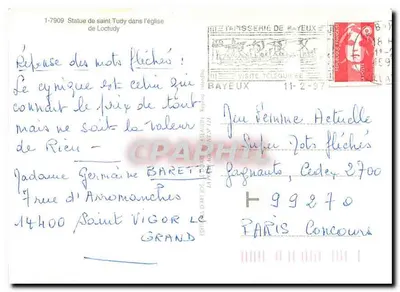 1-7909 Statue de saint Tudy dans l'église
de Loctudy
Réponse des mots fléchés :
Le cynique est celui qui
connait le prix de tout
mais ne sait la valeur
de Rien -
Madame Germaine BARETTE
7 rue d'Arromanches
14400 Saint VIGOR LE
GRAND
TAPISSERIE DE BAYEUX
BAYEUX 11-2-97
Jeu Femme Actuelle
Super Mots fléchés
Gagnants, Cedex 2700
99270
PARIS Concours